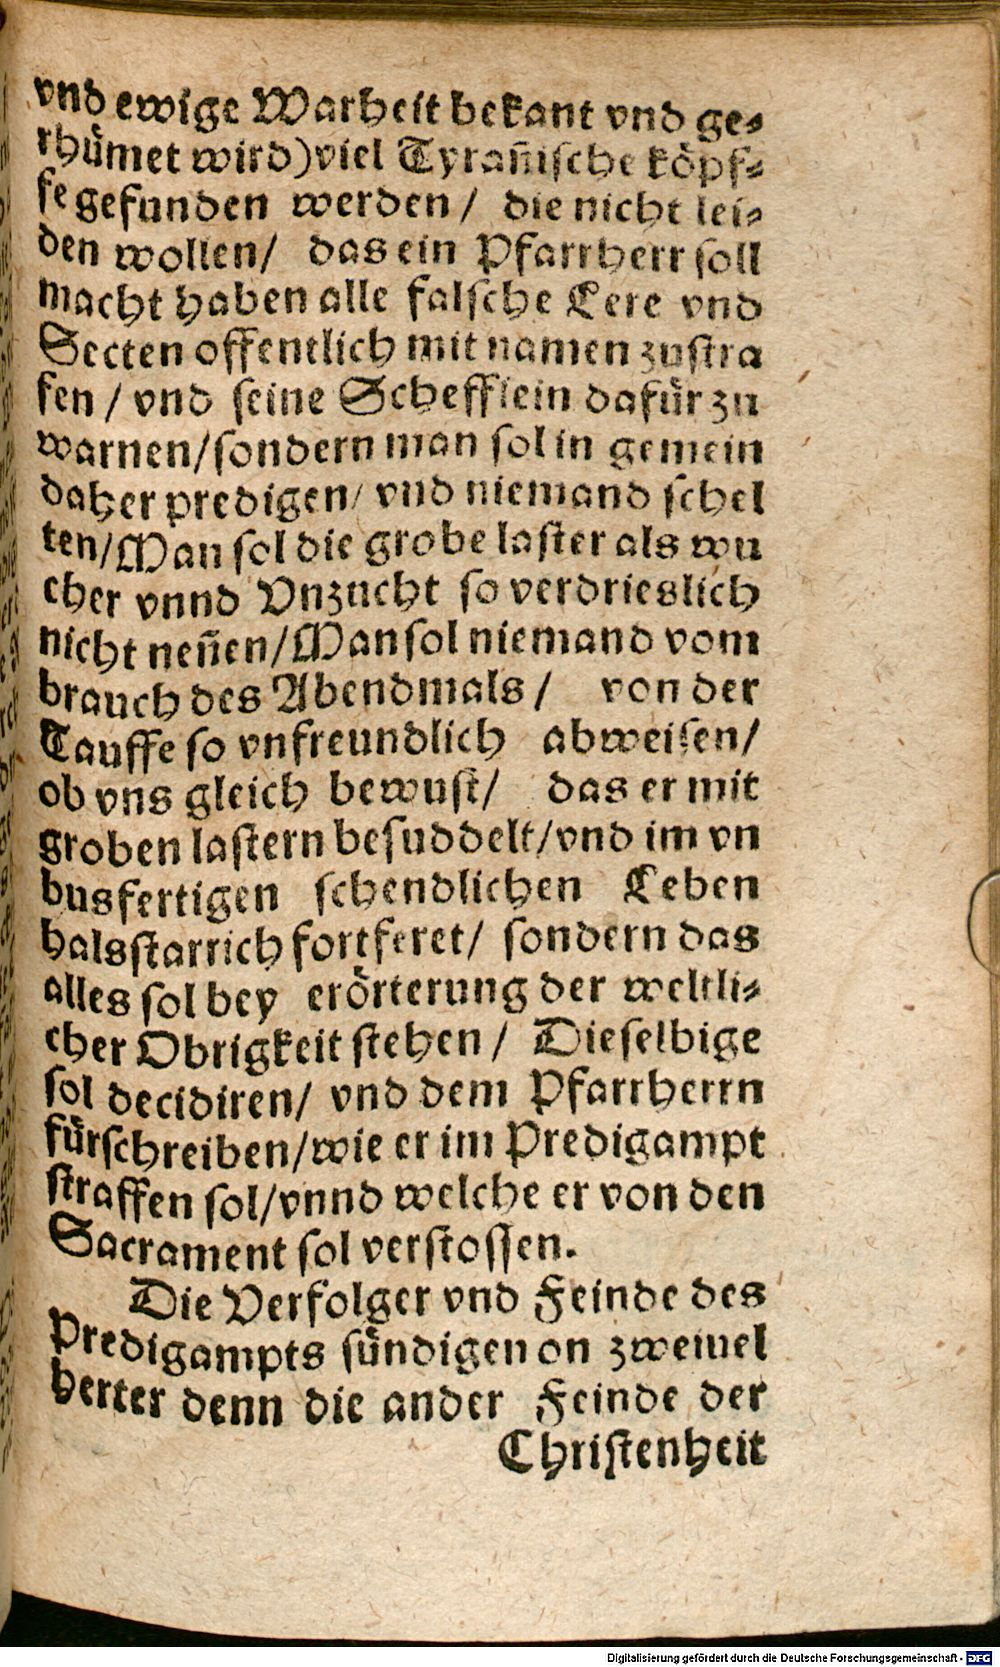 vnd ewige Warheit bekant vnd ge⸗
rhümet wird)viel Tyrañische köpf⸗
fe gefunden werden/ die nicht lei⸗
den wollen/ das ein Pfarrherr soll
macht haben alle falsche Lere vnd
Secten offentlich mit namen zustra
fen/ vnd seine Schefflein dafür zu
warnen/sondern man sol in gemein
daher predigen/ vnd niemand schel
ten/Man sol die grobe laster als wu
cher vnnd Vnzucht so verdrieslich
nicht neñen/Man sol niemand vom
brauch des Abendmals/ von der
Tauffe so vnfreundlich abweisen/
ob vns gleich bewust/ das er mit
groben lastern besuddelt/vnd im vn
busfertigen schendlichen Leben
halsstarrich fortferet/ sondern das
alles sol bey erörterung der weltli⸗
cher Obrigkeit stehen/ Dieselbige
sol decidiren/ vnd dem Pfarrherrn
fürschreiben/wie er im Predigampt
straffen sol/vnnd welche er von den
Sacrament sol verstossen.
Die Verfolger vnd Feinde des
Predigampts sündigen on zweiuel
herter denn die ander Feinde der
Christenheit
Digitalisierung gefördert durch die Deutsche Forschungsgemeinschaft - DFG